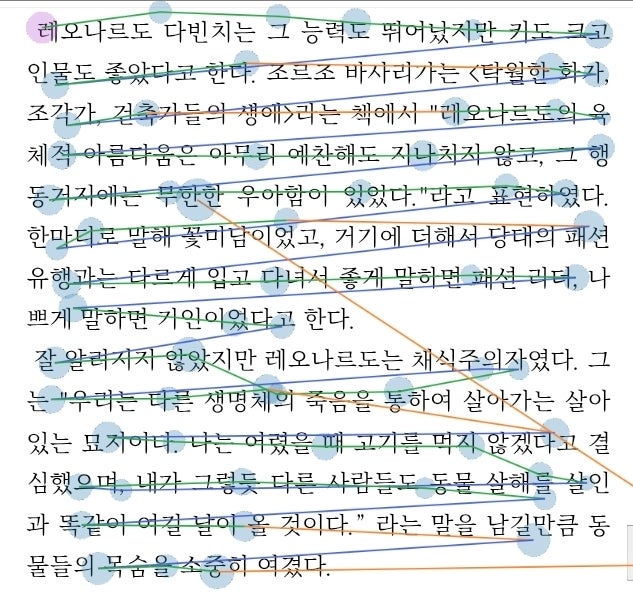 레오나르도 다빈치는 그 능력도 뛰어났지만 키도 크고
인물도 좋았다고 한다. 조르조 바사리가는 <탁월한 화가,
조각가, 건축가들의 생애>라는 책에서 "레오나르도의 육
체적 아름다움은 아무리 예찬해도 지나치지 않고, 그 행
동거지에는 무한한 우아함이 있었다."라고 표현하였다.
한마디로 말해 꽃미남이었고, 거기에 더해서 당대의 패션
유행과는 다르게 입고 다녀서 좋게 말하면 패션 리더, 나
쁘게 말하면 기인이었다고 한다.
잘 알려지지 않았지만 레오나르도는 채식주의자였다. 그
는 "우리는 다른 생명체의 죽음을 통하여 살아가는 살아
있는 묘지이다. 나는 어렸을 때 고기를 먹지 않겠다고 결
심했으며, 내가 그렇듯 다른 사람들도 동물 살해를 살인
과 똑같이 여길 날이 올 것이다.” 라는 말을 남길만큼 동
물들의 목숨을 소중히 여겼다.